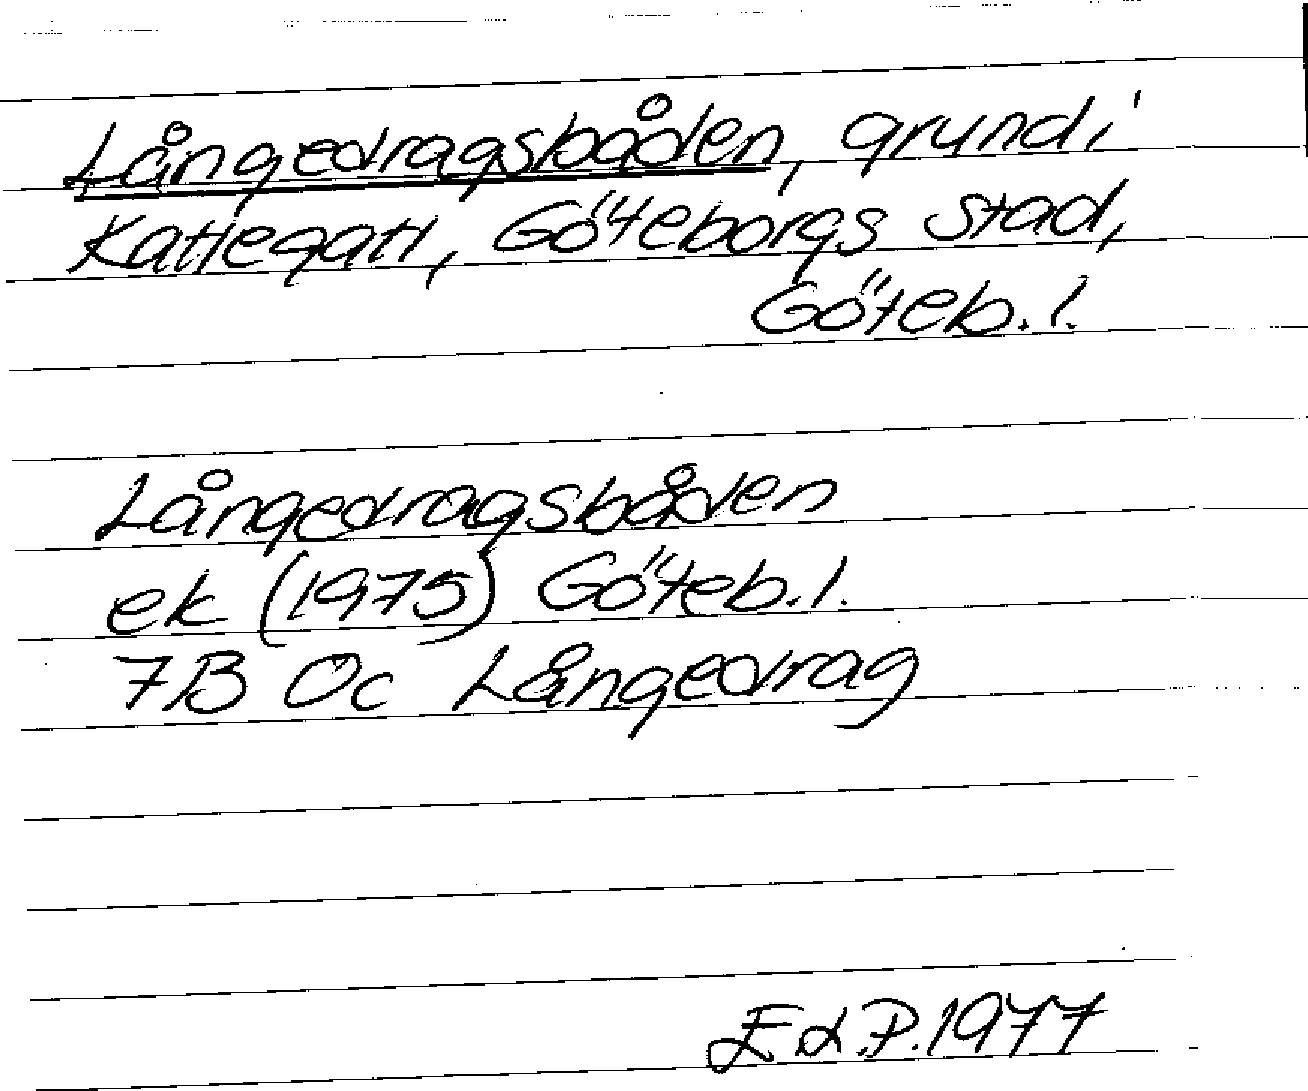 Långedragsbåden, grund i
Kattegatt, Göteborgs stad,
Göteb. l.
Långedragsbåden
ek (1975) Göteb. l.
7B 0c Långedrag
E.L.P. 1977